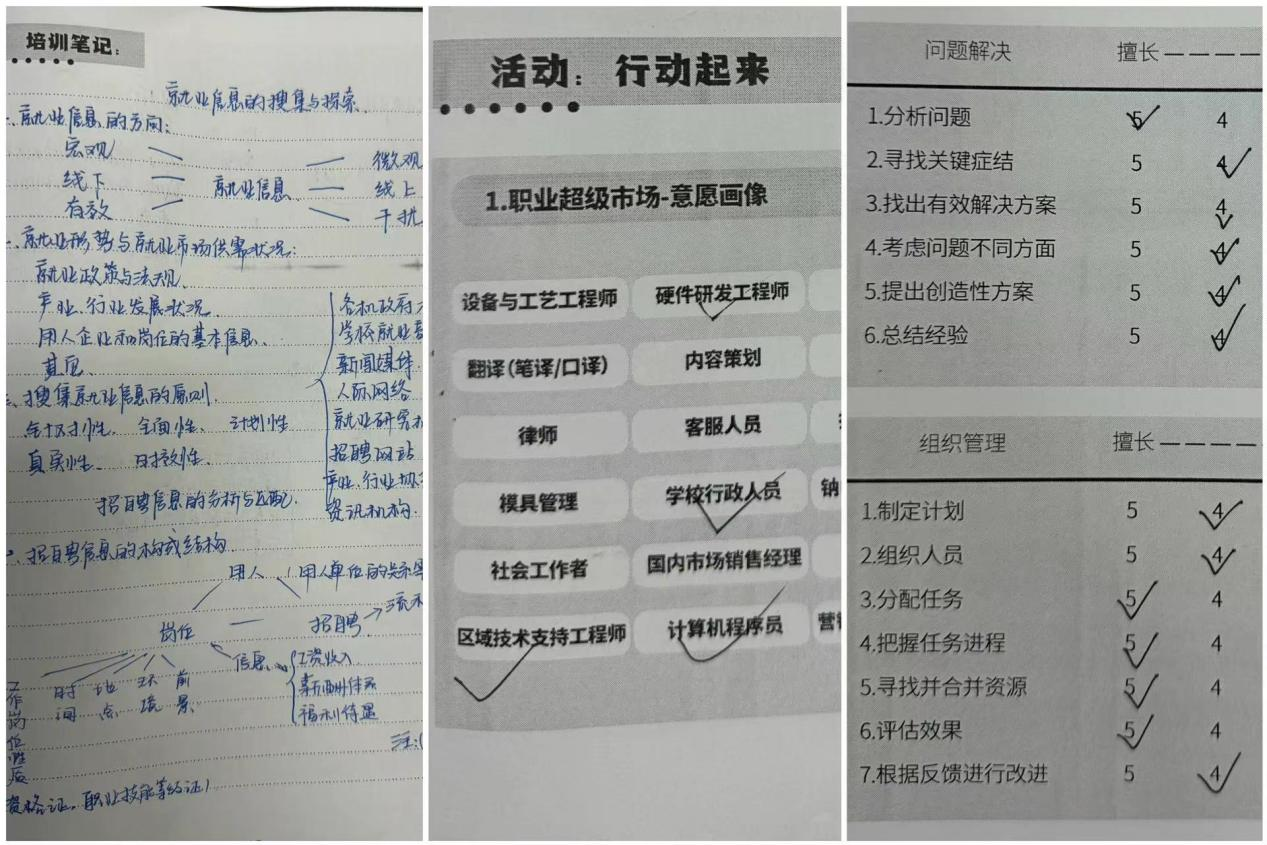 培训笔记:
就业信息的搜集与探索
一、就业信息的方向:
宏观 微观
线下 就业信息 线上
有效 干扰
、就业形势与就业市场供需状况:
就业政策与法规、
产业、行业发展状况、
用人企业和岗位的基本信息、
其它、
各机政府
学校就业
新闻媒体
人际网络
就业研究机
招聘网站
产业、行业协
资讯机构.
三、搜集就业信息的原则
针对性、全面性、计划性
真实性、时效性、
招聘信息的分析与匹配.
招聘信息的构成结构
用人 用人单位的关系
岗位 招聘
信息
工资收入
薪酬体系
福利待遇
工作岗位性质
时间
地点
环境
前景
注:
资格证、职业技能等级证!
活动: 行动起来
1.职业超级市场-意愿画像
设备与工艺工程师 硬件研发工程师
翻译(笔译/口译) 内容策划
律师 客服人员
模具管理 学校行政人员 钠
社会工作者 国内市场销售经理
区域技术支持工程师 计算机程序员 营
问题解决 擅长————
1.分析问题 5 4
2.寻找关键症结 5 4
3.找出有效解决方案 5 4
4.考虑问题不同方面 5 4
5.提出创造性方案 5 4
6.总结经验 5 4
组织管理 擅长————
1.制定计划 5 4
2.组织人员 5 4
3.分配任务 5 4
4.把握任务进程 5 4
5.寻找并合并资源 5 4
6.评估效果 5 4
7.根据反馈进行改进 5 4